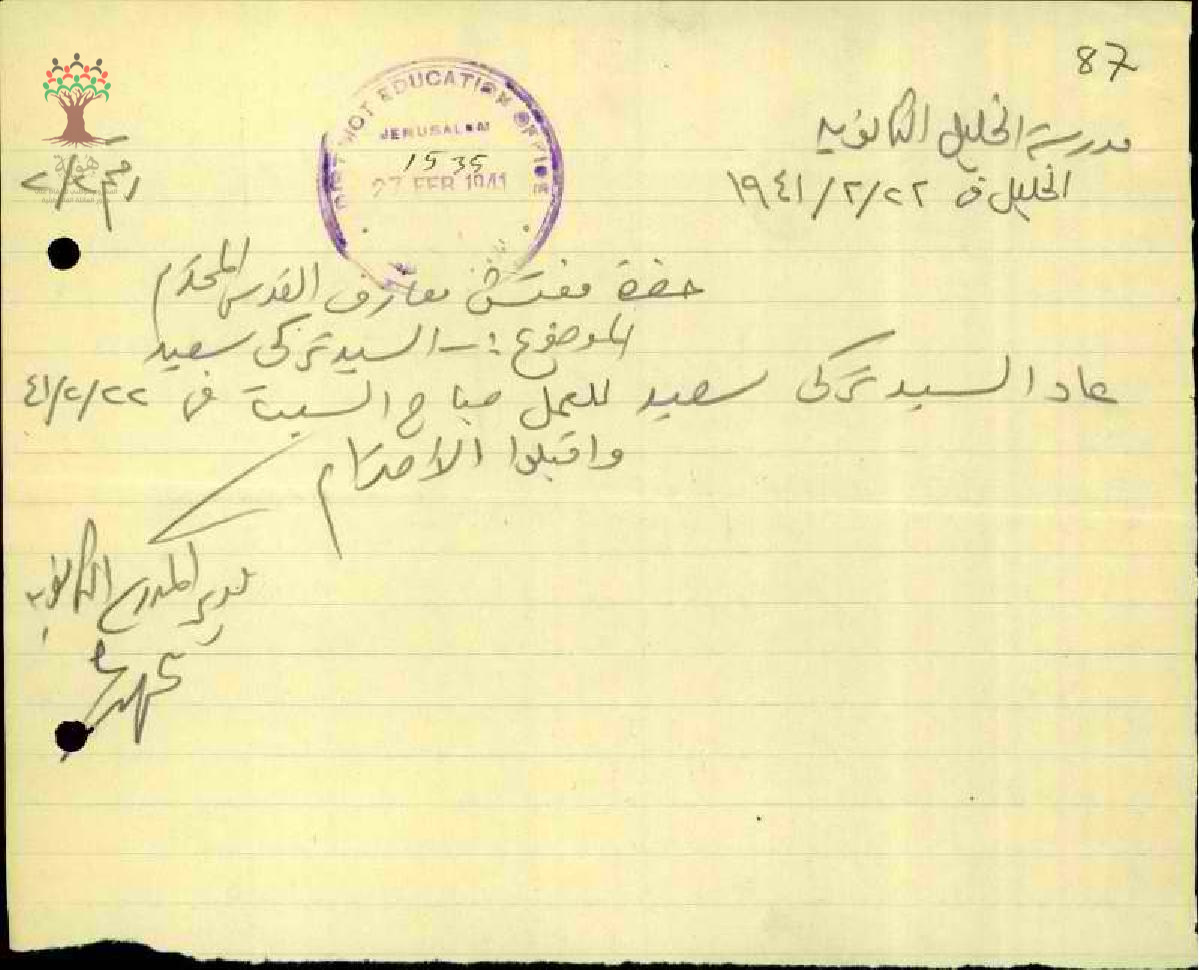 87
مدرسة الخليل الثانوية
الخليل في ٢٢/٢/١٩٤١
رقم ٢/٢
DISTRICT EDUCATION OFFICE
JERUSALEM
1535
27 FEB 1941
هوية
حضرة مفتش معارف القدس المحترم
الموضوع :- السيد تركي سعيد
عاد السيد تركي سعيد للعمل صباح السبت في ٢٢/٢/٤١
واقبلوا الاحترام
مدير المدرسة الثانوية